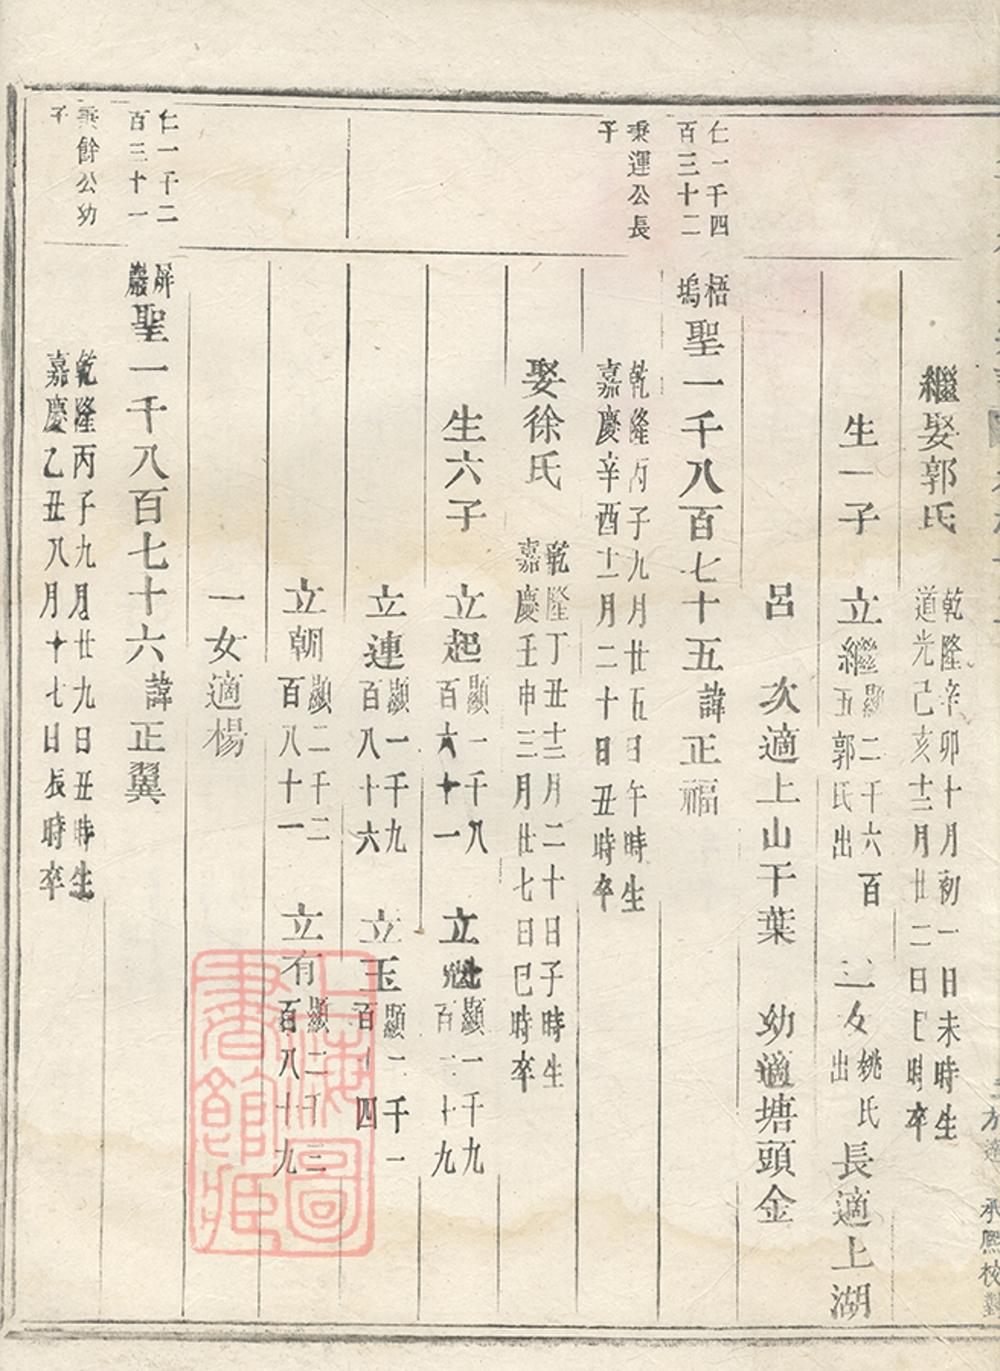 繼娶郭氏
乾隆辛卯十月初一日未時生
道光己亥十二月廿二日巳時卒
生一子
立繼
顯二千六百
五郭氏出
三女
姚氏
出
長適上湖
呂
次適上山干葉
幼適塘頭金
仁一千四
百三十二
梧
塢
聖一千八百七十五
諱正福
秉運公長
子
乾隆丙子九月廿五日午時生
嘉慶辛酉十一月二十日丑時卒
娶徐氏
乾隆丁丑十二月二十日子時生
嘉慶壬申三月廿七日巳時卒
生六子
立起
顯一千八
百六十一
立
顯一千九
百二十九
立連
顯一千九
百八十六
立玉
顯二千一
百四
立朝
顯二千二
百八十一
立有
顯二千三
百八十九
一女適楊
仁一千二
百三十一
屏
巖
聖一千八百七十六
諱正翼
秉餘公幼
子
乾隆丙子九月廿九日丑時生
嘉慶乙丑八月十七日辰時卒
承熙校對
上海圖
書館藏